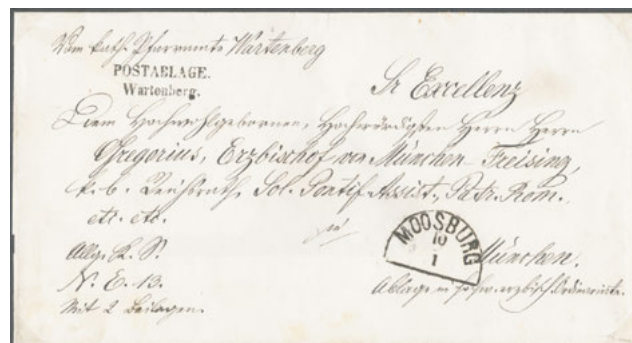 Vom kath. Pfarramte Wartenberg
POSTABLAGE.
Wartenberg.
Sr Excellenz
Dem Hochwohlgebornen, Hochwürdigsten Herrn Herrn
Gregorius, Erzbischof von München-Freising,
k. b. Reichsrath, Sol. Pontif. Assist., Patr. Rom.
etc. etc.
in
MOOSBURG
10
1
München.
Allg. R. S.
N. E. 13.
Mit 2 Beilagen.
Ablage